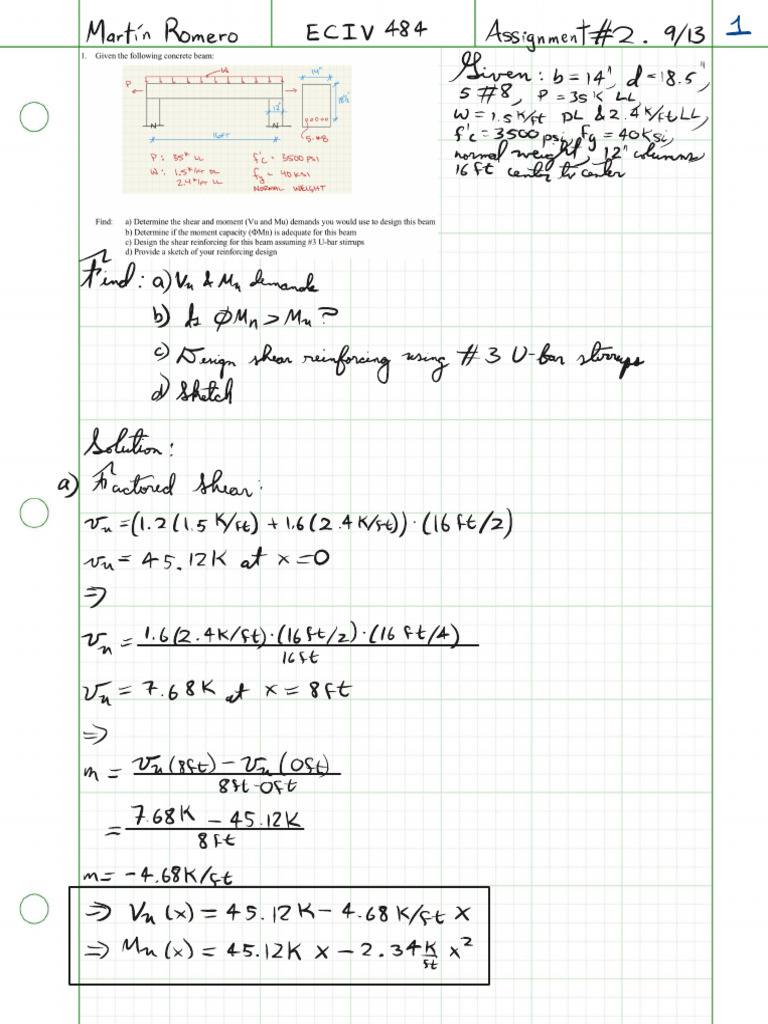 Martín Romero ECIV 484 Assignment #2. 9/13 1
1. Given the following concrete beam:
W
P
14"
18½"
12"
16FT
5-#8
P: 35ᴷ LL
W: 1.5ᴷ/FT DL
2.4ᴷ/FT LL
f'c = 3500 PSI
fy = 40 KSI
NORMAL WEIGHT
Find: a) Determine the shear and moment (Vu and Mu) demands you would use to design this beam
b) Determine if the moment capacity (ΦMn) is adequate for this beam
c) Design the shear reinforcing for this beam assuming #3 U-bar stirrups
d) Provide a sketch of your reinforcing design
Given: b = 14", d = 18.5",
5 #8, P = 35K LL
W = 1.5 K/ft DL & 2.4 K/ft LL,
f'c = 3500 psi, fy = 40 Ksi,
normal weight, 12" columns
16 ft center to center
Find: a) Vu & Mu demands
b) Is ΦMn > Mu?
c) Design shear reinforcing using #3 U-bar stirrups
d) Sketch
Solution:
a) Factored shear:
Vu = (1.2(1.5 K/ft) + 1.6(2.4 K/ft)) · (16 ft/2)
Vu = 45.12K at x = 0
⇒
Vu = 1.6(2.4K/ft)·(16ft/2)·(16 ft/4)
16ft
Vu = 7.68K at x = 8ft
⇒
m = Vu(8ft) – Vu(0ft)
8ft - 0ft
= 7.68K – 45.12K
8ft
m = -4.68K/ft
⇒ Vu(x) = 45.12K – 4.68 K/ft x
⇒ Mu(x) = 45.12K x – 2.34 K/ft x²